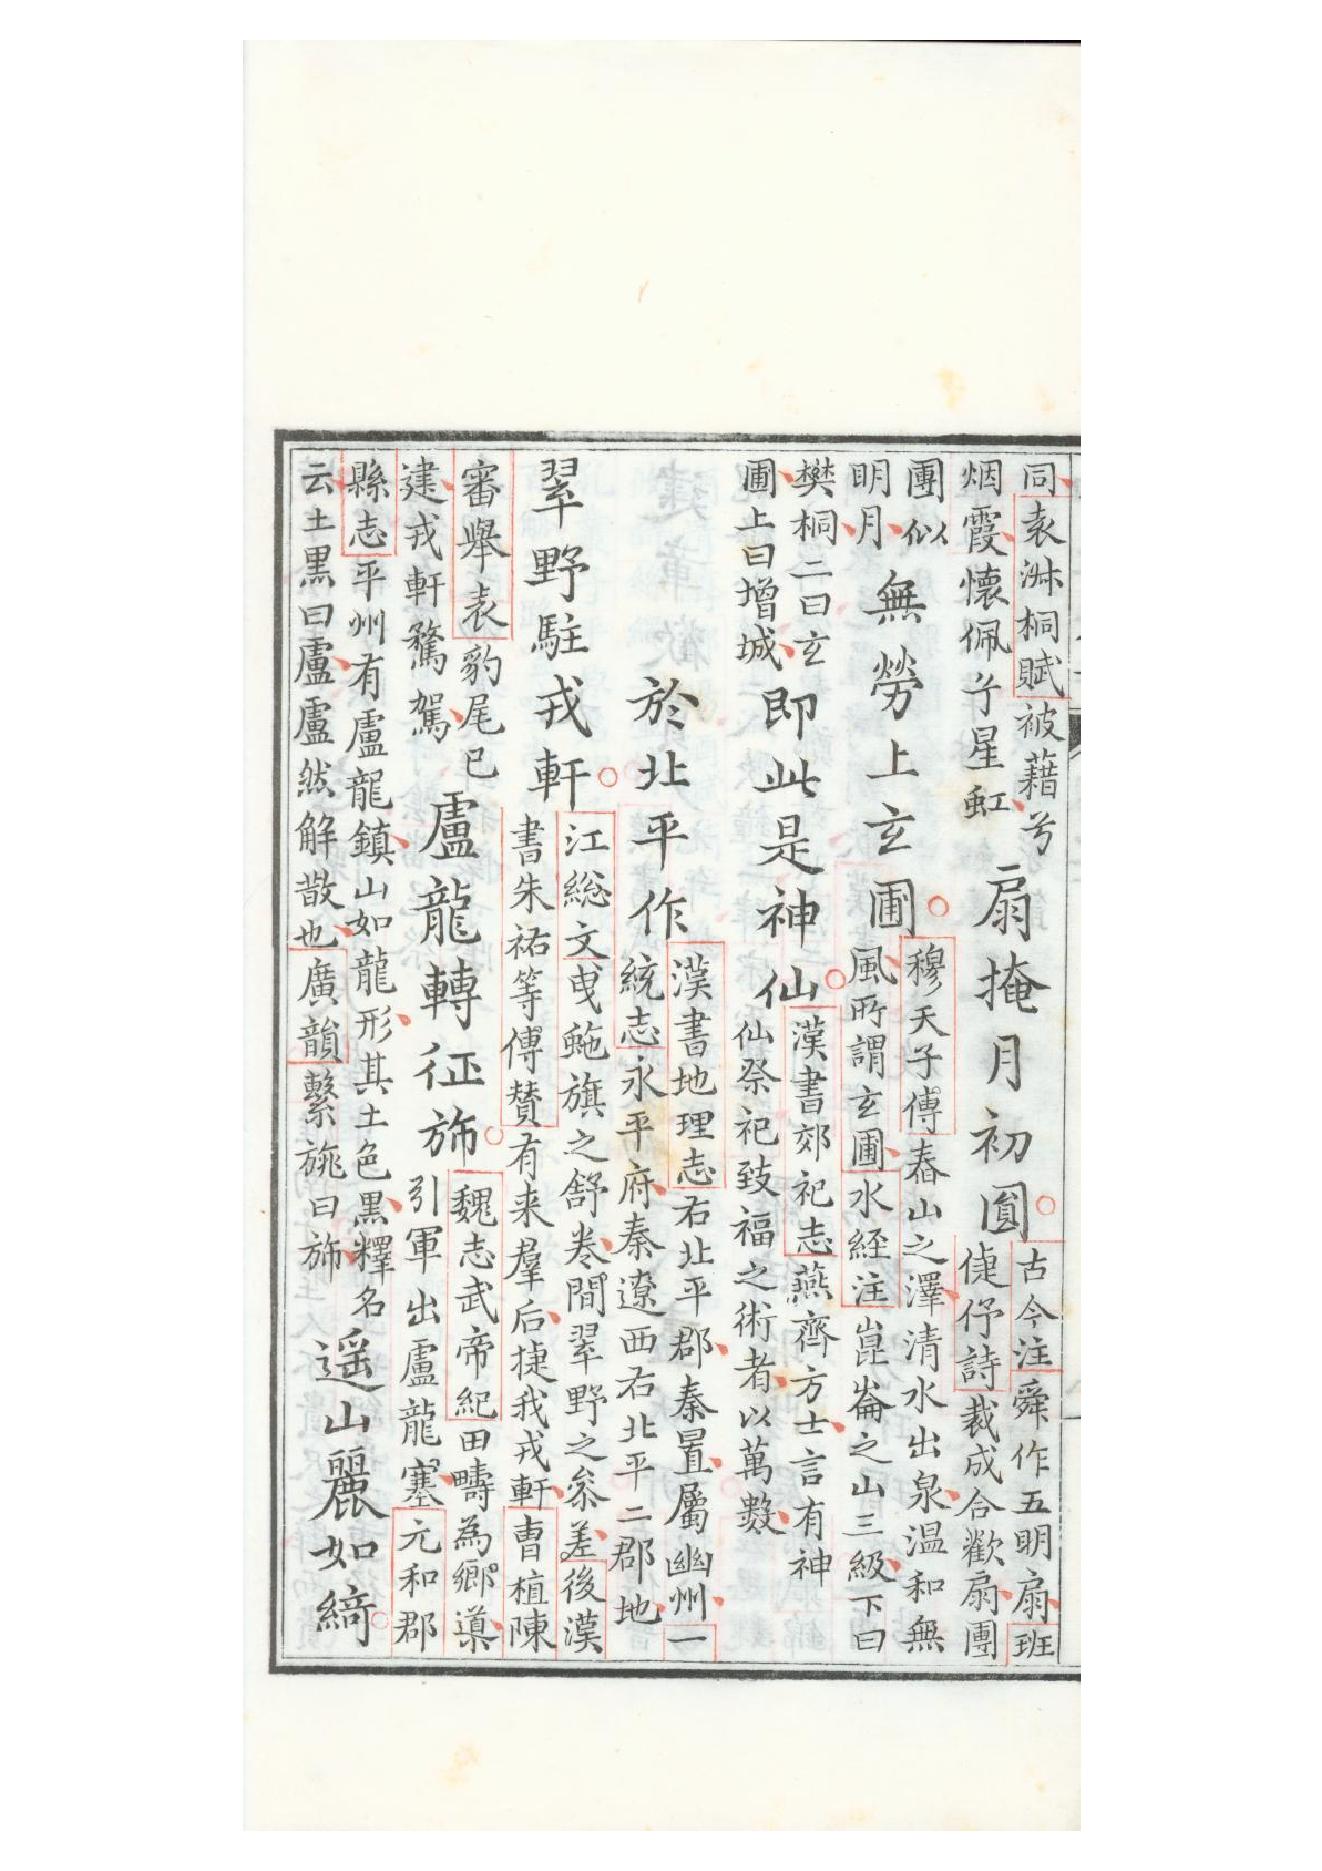 同袁淋桐賦被藉兮
烟霞懷佩兮星虹
扇掩月初圓
古今注舜作五明扇班
倢伃詩裁成合歡扇團
團似
明月
無勞上玄圃
穆天子傳舂山之澤清水出泉温和無
風所謂玄圃水經注崑崙之山三級下曰
樊桐二曰玄
圃上曰增城
即此是神仙
漢書郊祀志燕齊方士言有神
仙祭祀致福之術者以萬數
於北平作
漢書地理志右北平郡秦置屬幽州一
統志永平府秦遼西右北平二郡地
翠野駐戎軒
江総文曳䖡旗之舒卷間翠野之叅差後漢
書朱祐等傳贊有来羣后捷我戎軒曹植陳
審舉表豹尾已
建戎軒騖駕
盧龍轉征斾
魏志武帝紀田疇為鄉導
引軍出盧龍塞元和郡
縣志平州有盧龍鎮山如龍形其土色黑釋名
云土黒曰盧盧然解散也廣韻繫旐曰斾
遥山麗如綺